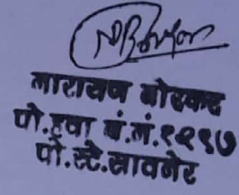 नारायण बोरकर
पो.हवा बं.नं.१२९७
पो.स्टे.सावनेर